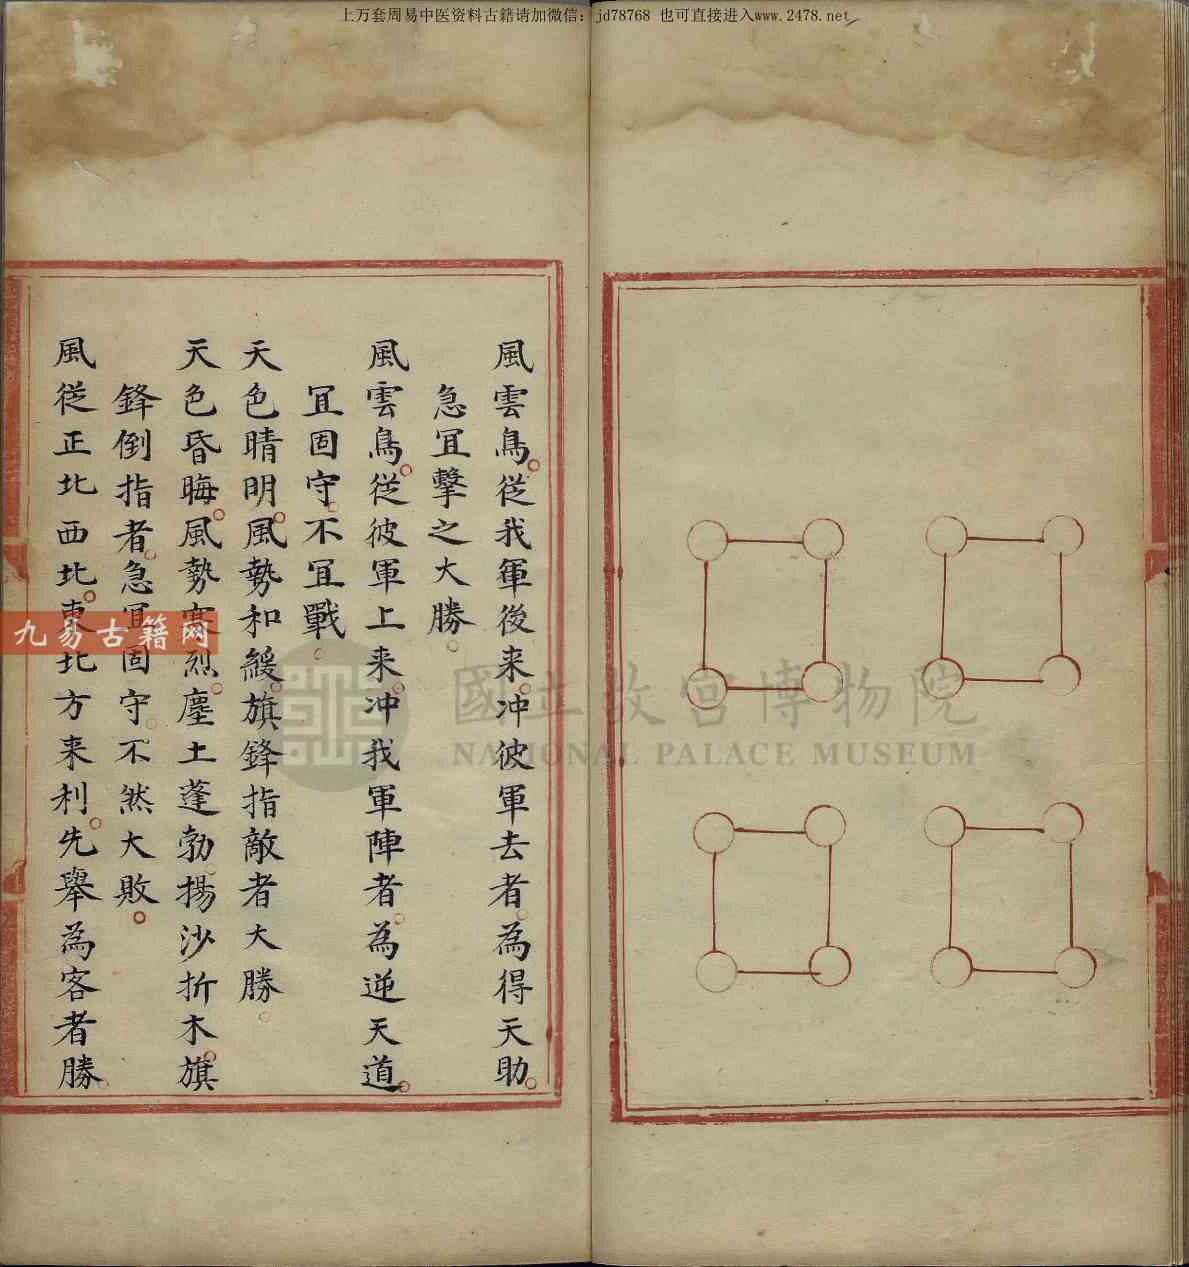 上万套周易中医资料古籍请加微信：jd78768 也可直接进入www.2478.net
風雲鳥從我軍後来冲彼軍去者為得天助
急冝擊之大勝
風雲鳥從彼軍上来冲我軍陣者為逆天道
冝固守不冝戰
天色晴明風勢和緩旗鋒指敵者大勝
天色昏晦風勢寒烈塵土蓬勃揚沙折木旗
鋒倒指者急冝固守不然大敗
風從正北西北東北方来利先舉為客者勝
九易古籍网
國立故宮博物院
NATIONAL PALACE MUSEUM